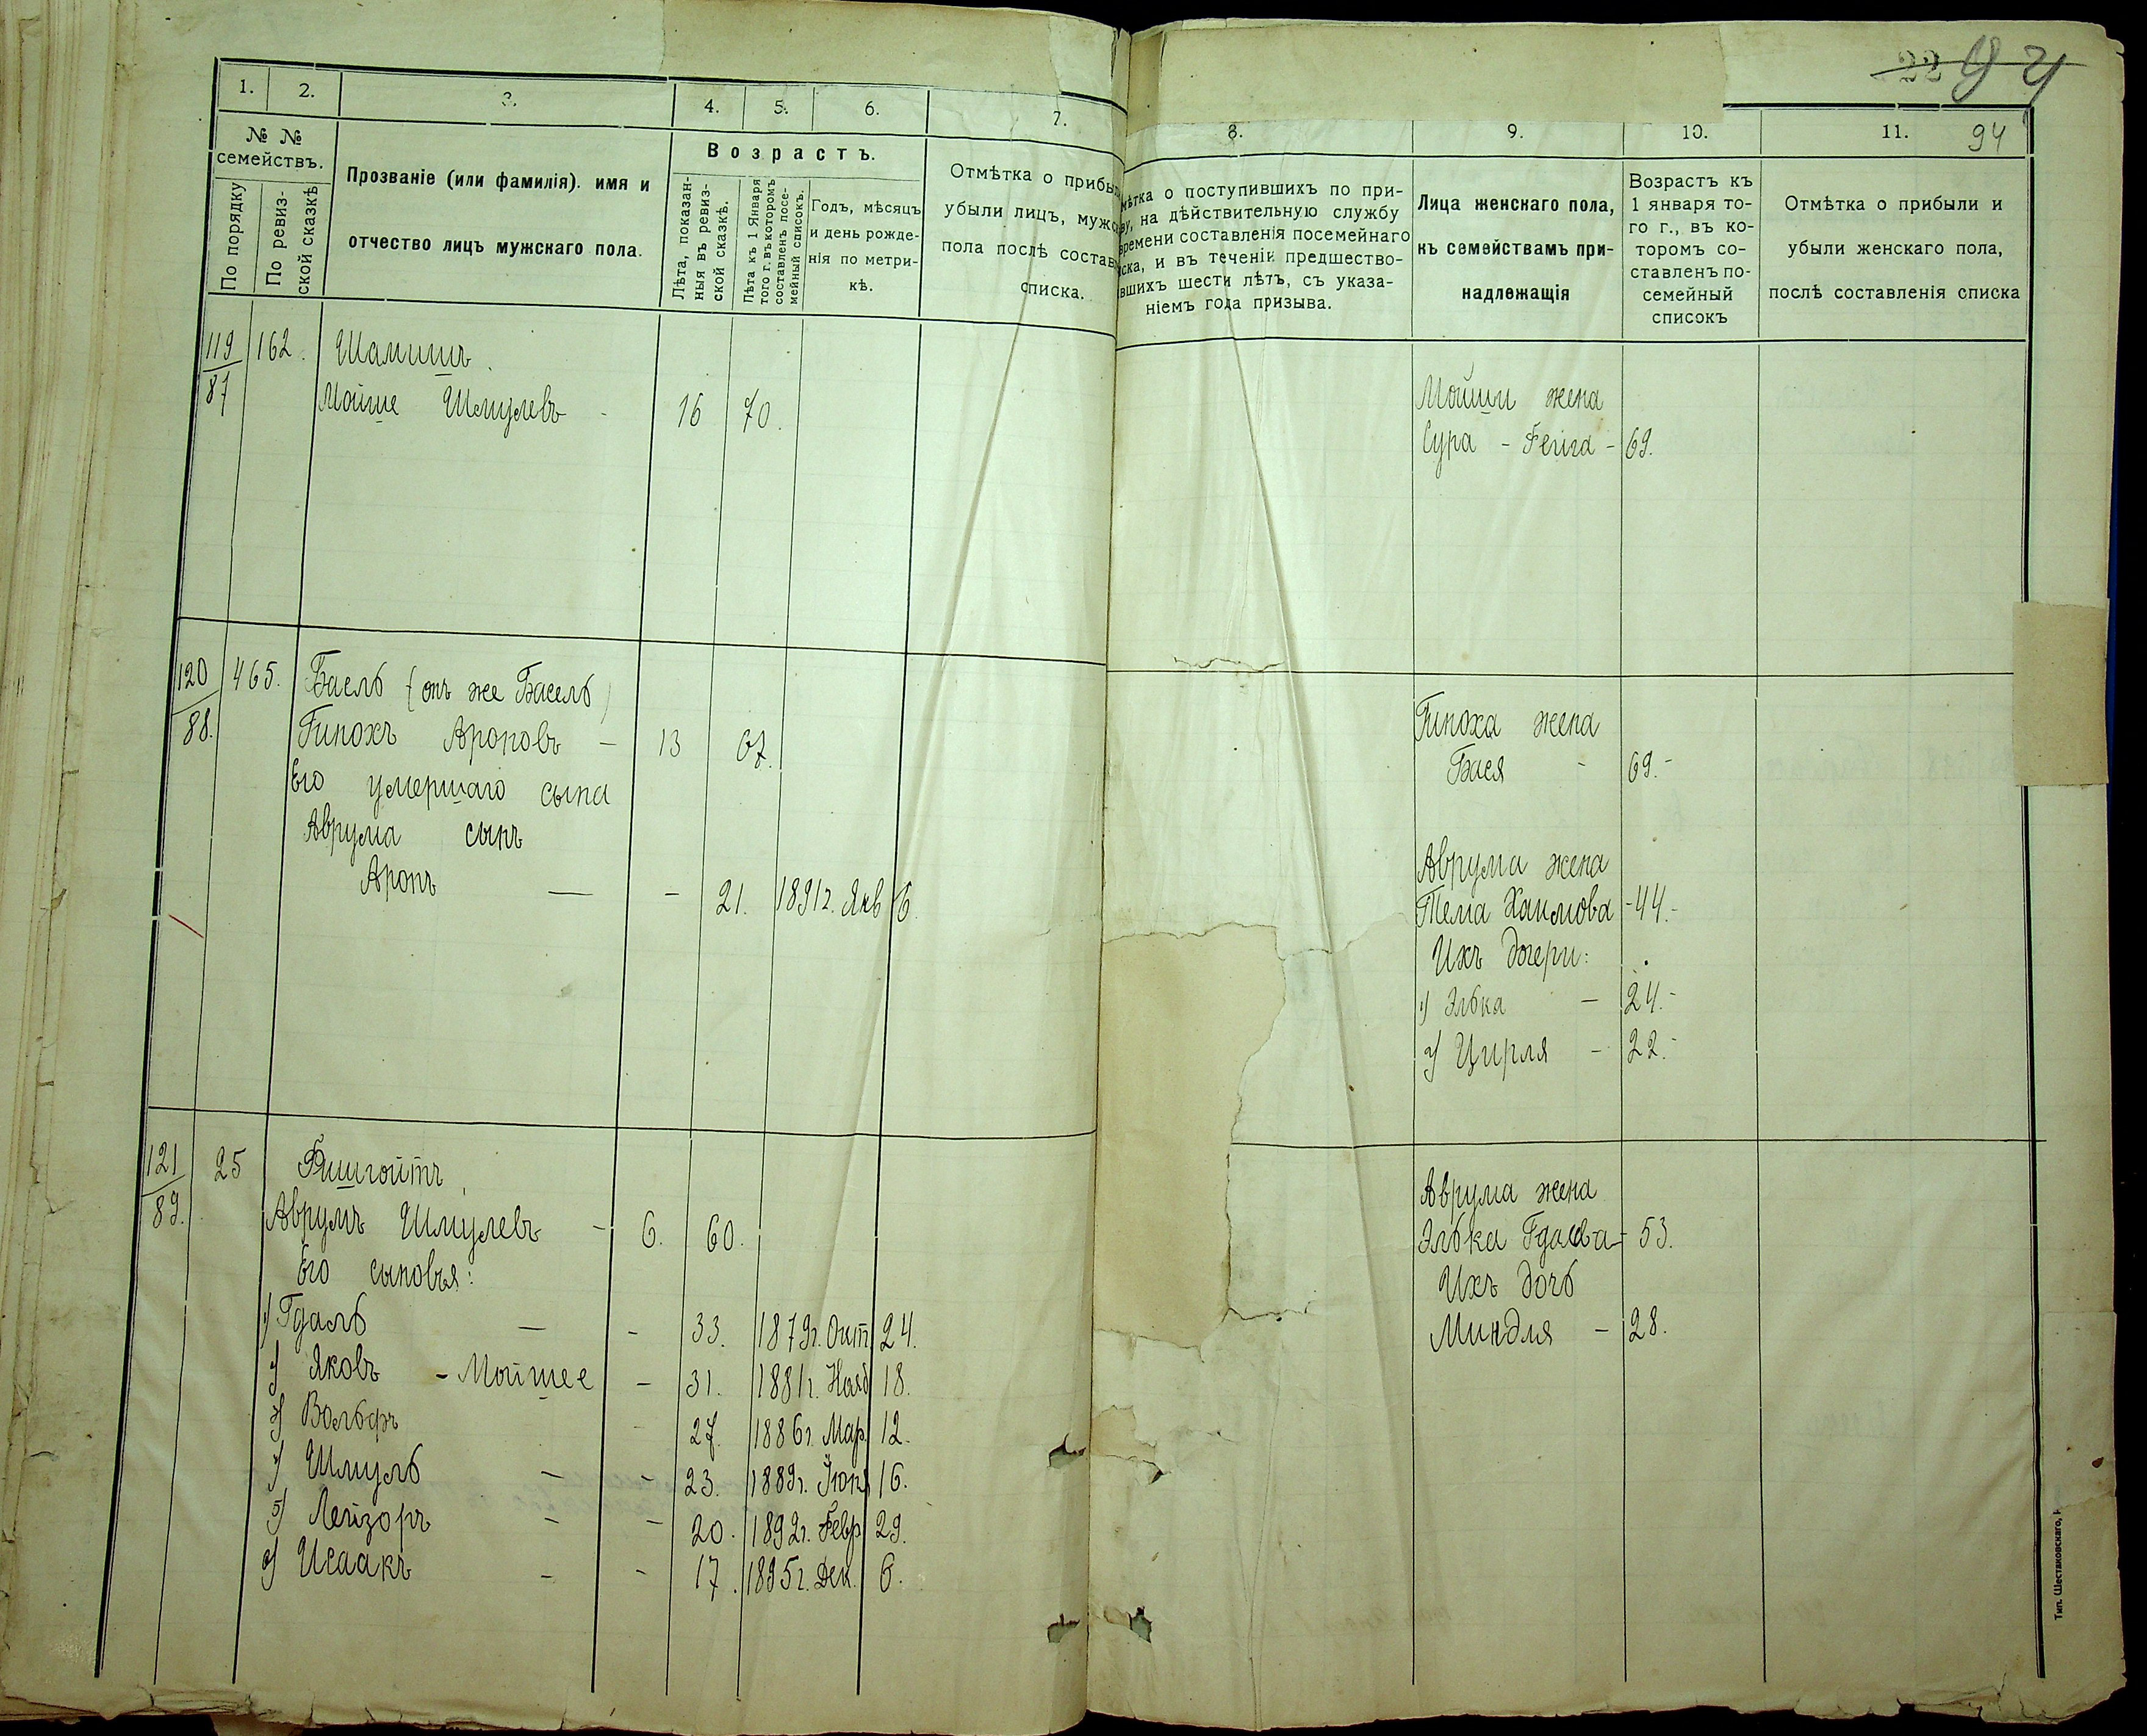 22 94
1. 2. 3. 4. 5. 6. 7.
№ №
семействъ.
По порядку
По ревиз-
ской сказкѣ
Прозваніе (или фамилія). имя и
отчество лицъ мужскаго пола.
Возрастъ.
Лѣта, показан-
ныя въ ревиз-
ской сказкѣ.
Лѣта къ 1 Января
того г. въ которомъ
составленъ посе-
мейный списокъ.
Годъ, мѣсяцъ
и день рожде-
нія по метри-
кѣ.
Отмѣтка о прибы
убыли лицъ, мужс
пола послѣ состав
списка.
119/87 162. Шамишъ.
Мойше Шмулевъ - 16 70.
120/88. 465. Баель (онъ же Басель)
Гинохъ Ароновъ - 13 67.
Его умершаго сына
Аврума сынъ
Аронъ — - 21. 1891г. Янв 6.
121/89. 25 Фишгойтъ.
Аврумъ Шмулевъ - 6. 60.
Его сыновья:
1) Гдаль — - 33. 1879г. Окт. 24.
2) Яковъ - Мойшее - 31. 1881г. Нояб 18.
3) Вольфъ - 27. 1886г. Мар. 12.
4) Шмуль — - 23. 1889г. Іюн. 16.
5) Лейзоръ - - 20. 1892г. Февр. 29.
6) Исаакъ - - 17. 1895г. Дек. 6.
8. 9. 10. 11. 94
мѣтка о поступившихъ по при-
ву, на дѣйствительную службу
времени составленія посемейнаго
иска, и въ теченіи предшество-
вшихъ шести лѣтъ, съ указа-
ніемъ года призыва.
Лица женскаго пола,
къ семействамъ при-
надлежащія
Возрастъ къ
1 января то-
го г., въ ко-
торомъ со-
ставленъ по-
семейный
списокъ
Отмѣтка о прибыли и
убыли женскаго пола,
послѣ составленія списка
Мойши жена
Сура - Фейга - 69.
Гиноха жена
Бася - 69.-
Аврума жена
Тема Хаимова - 44.-
Ихъ дочери:
1) Элька - 24.-
2) Цирля - 22.-
Аврума жена
Элька Гдалева - 53.
Ихъ дочь
Миндля - 28.
Тип. Шестаковскаго,